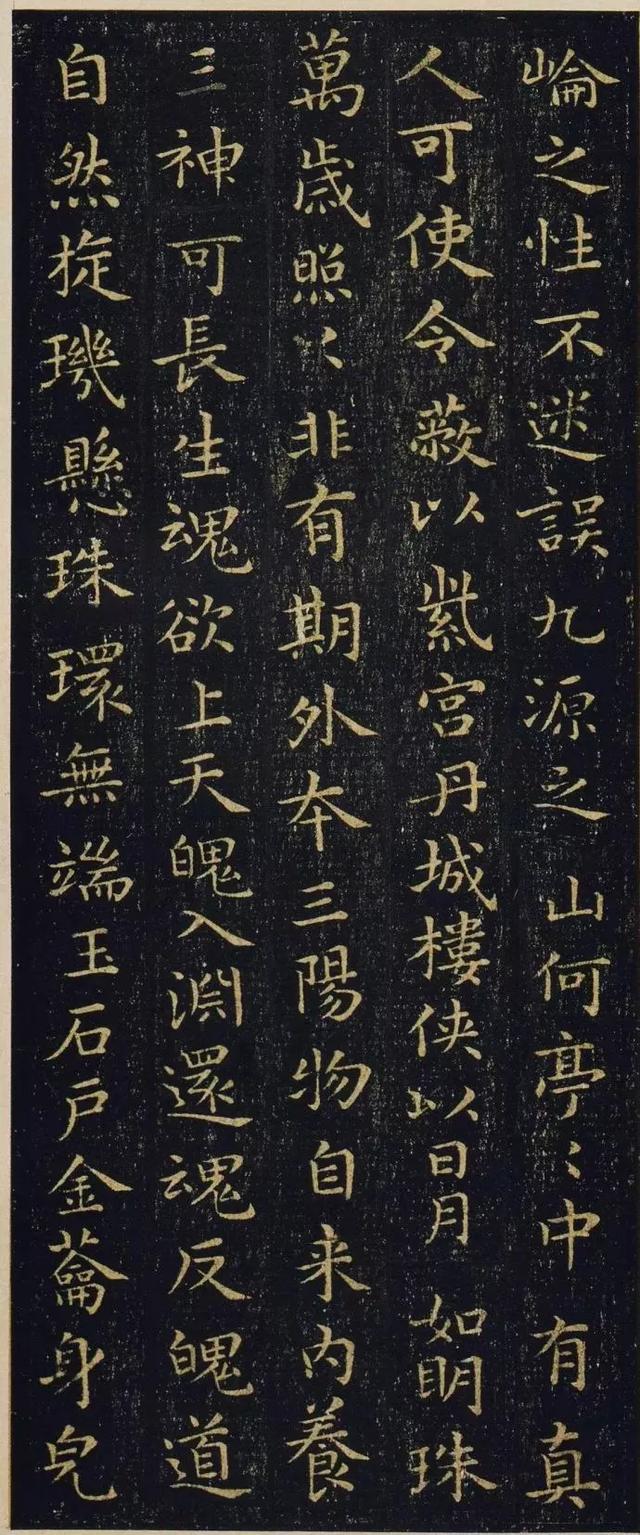 崘之性不迷誤九源之山何亭〻中有真
人可使令蔽以紫宫丹城樓侠以日月如明珠
萬歲照〻非有期外夲三陽物自来内養
三神可長生魂欲上天魄入淵還魂反魄道
自然旋璣懸珠環無端玉石戶金蘥身皃